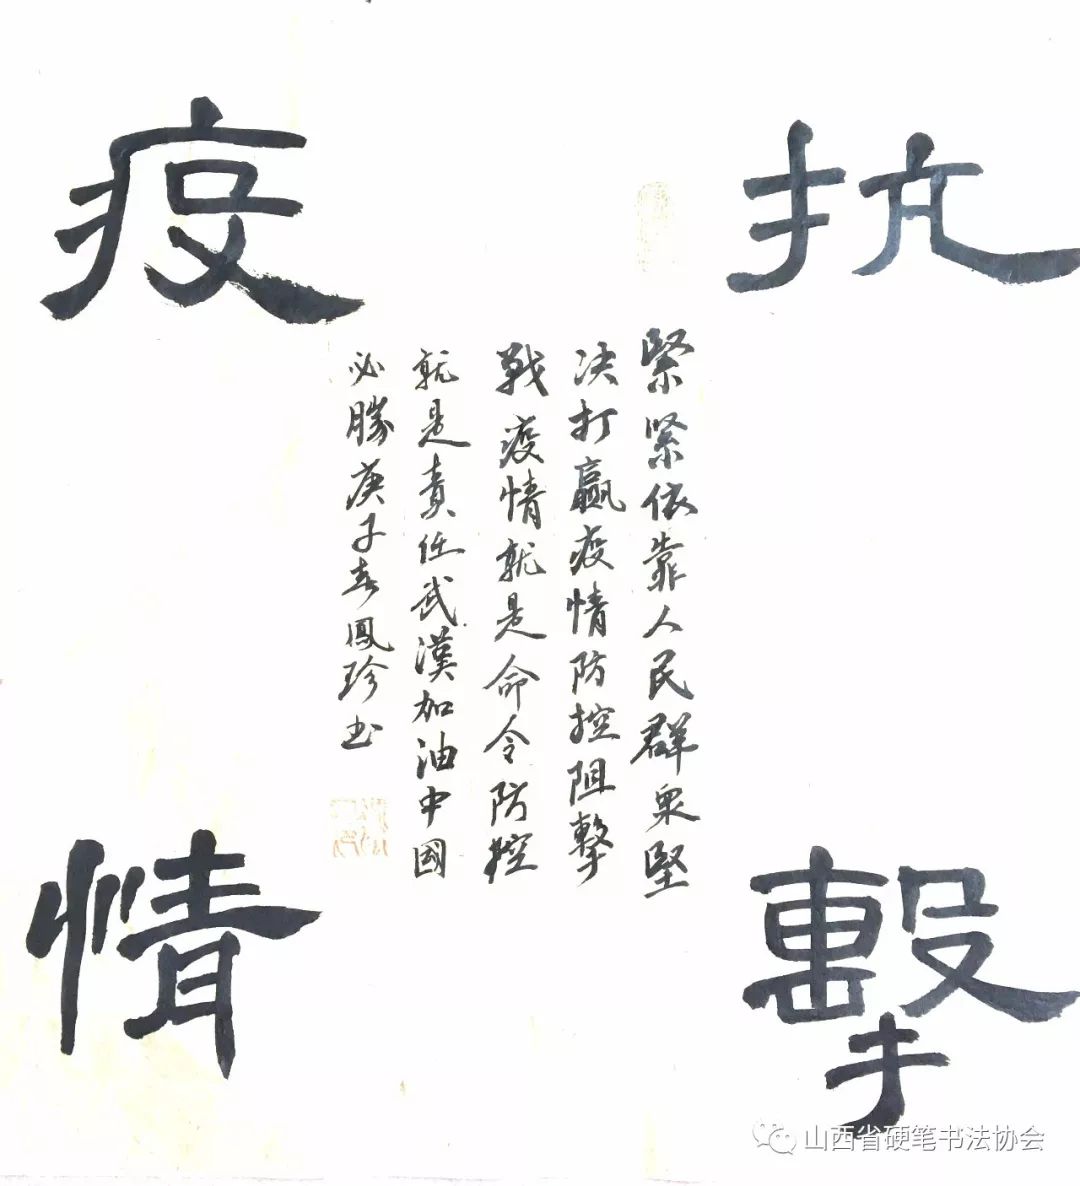 抗擊
疫情
緊緊依靠人民群眾堅
决打贏疫情防控阻擊
戰疫情就是命令防控
就是責任武漢加油中國
必勝庚子春鳳珍书
山西省硬笔书法协会